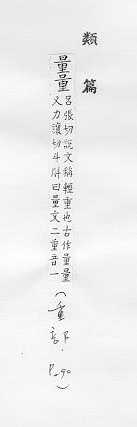 類篇
量量
呂張切說文稱輕重也古作量量
又力讓切斗斛曰量文二重音一
（重 P.90）